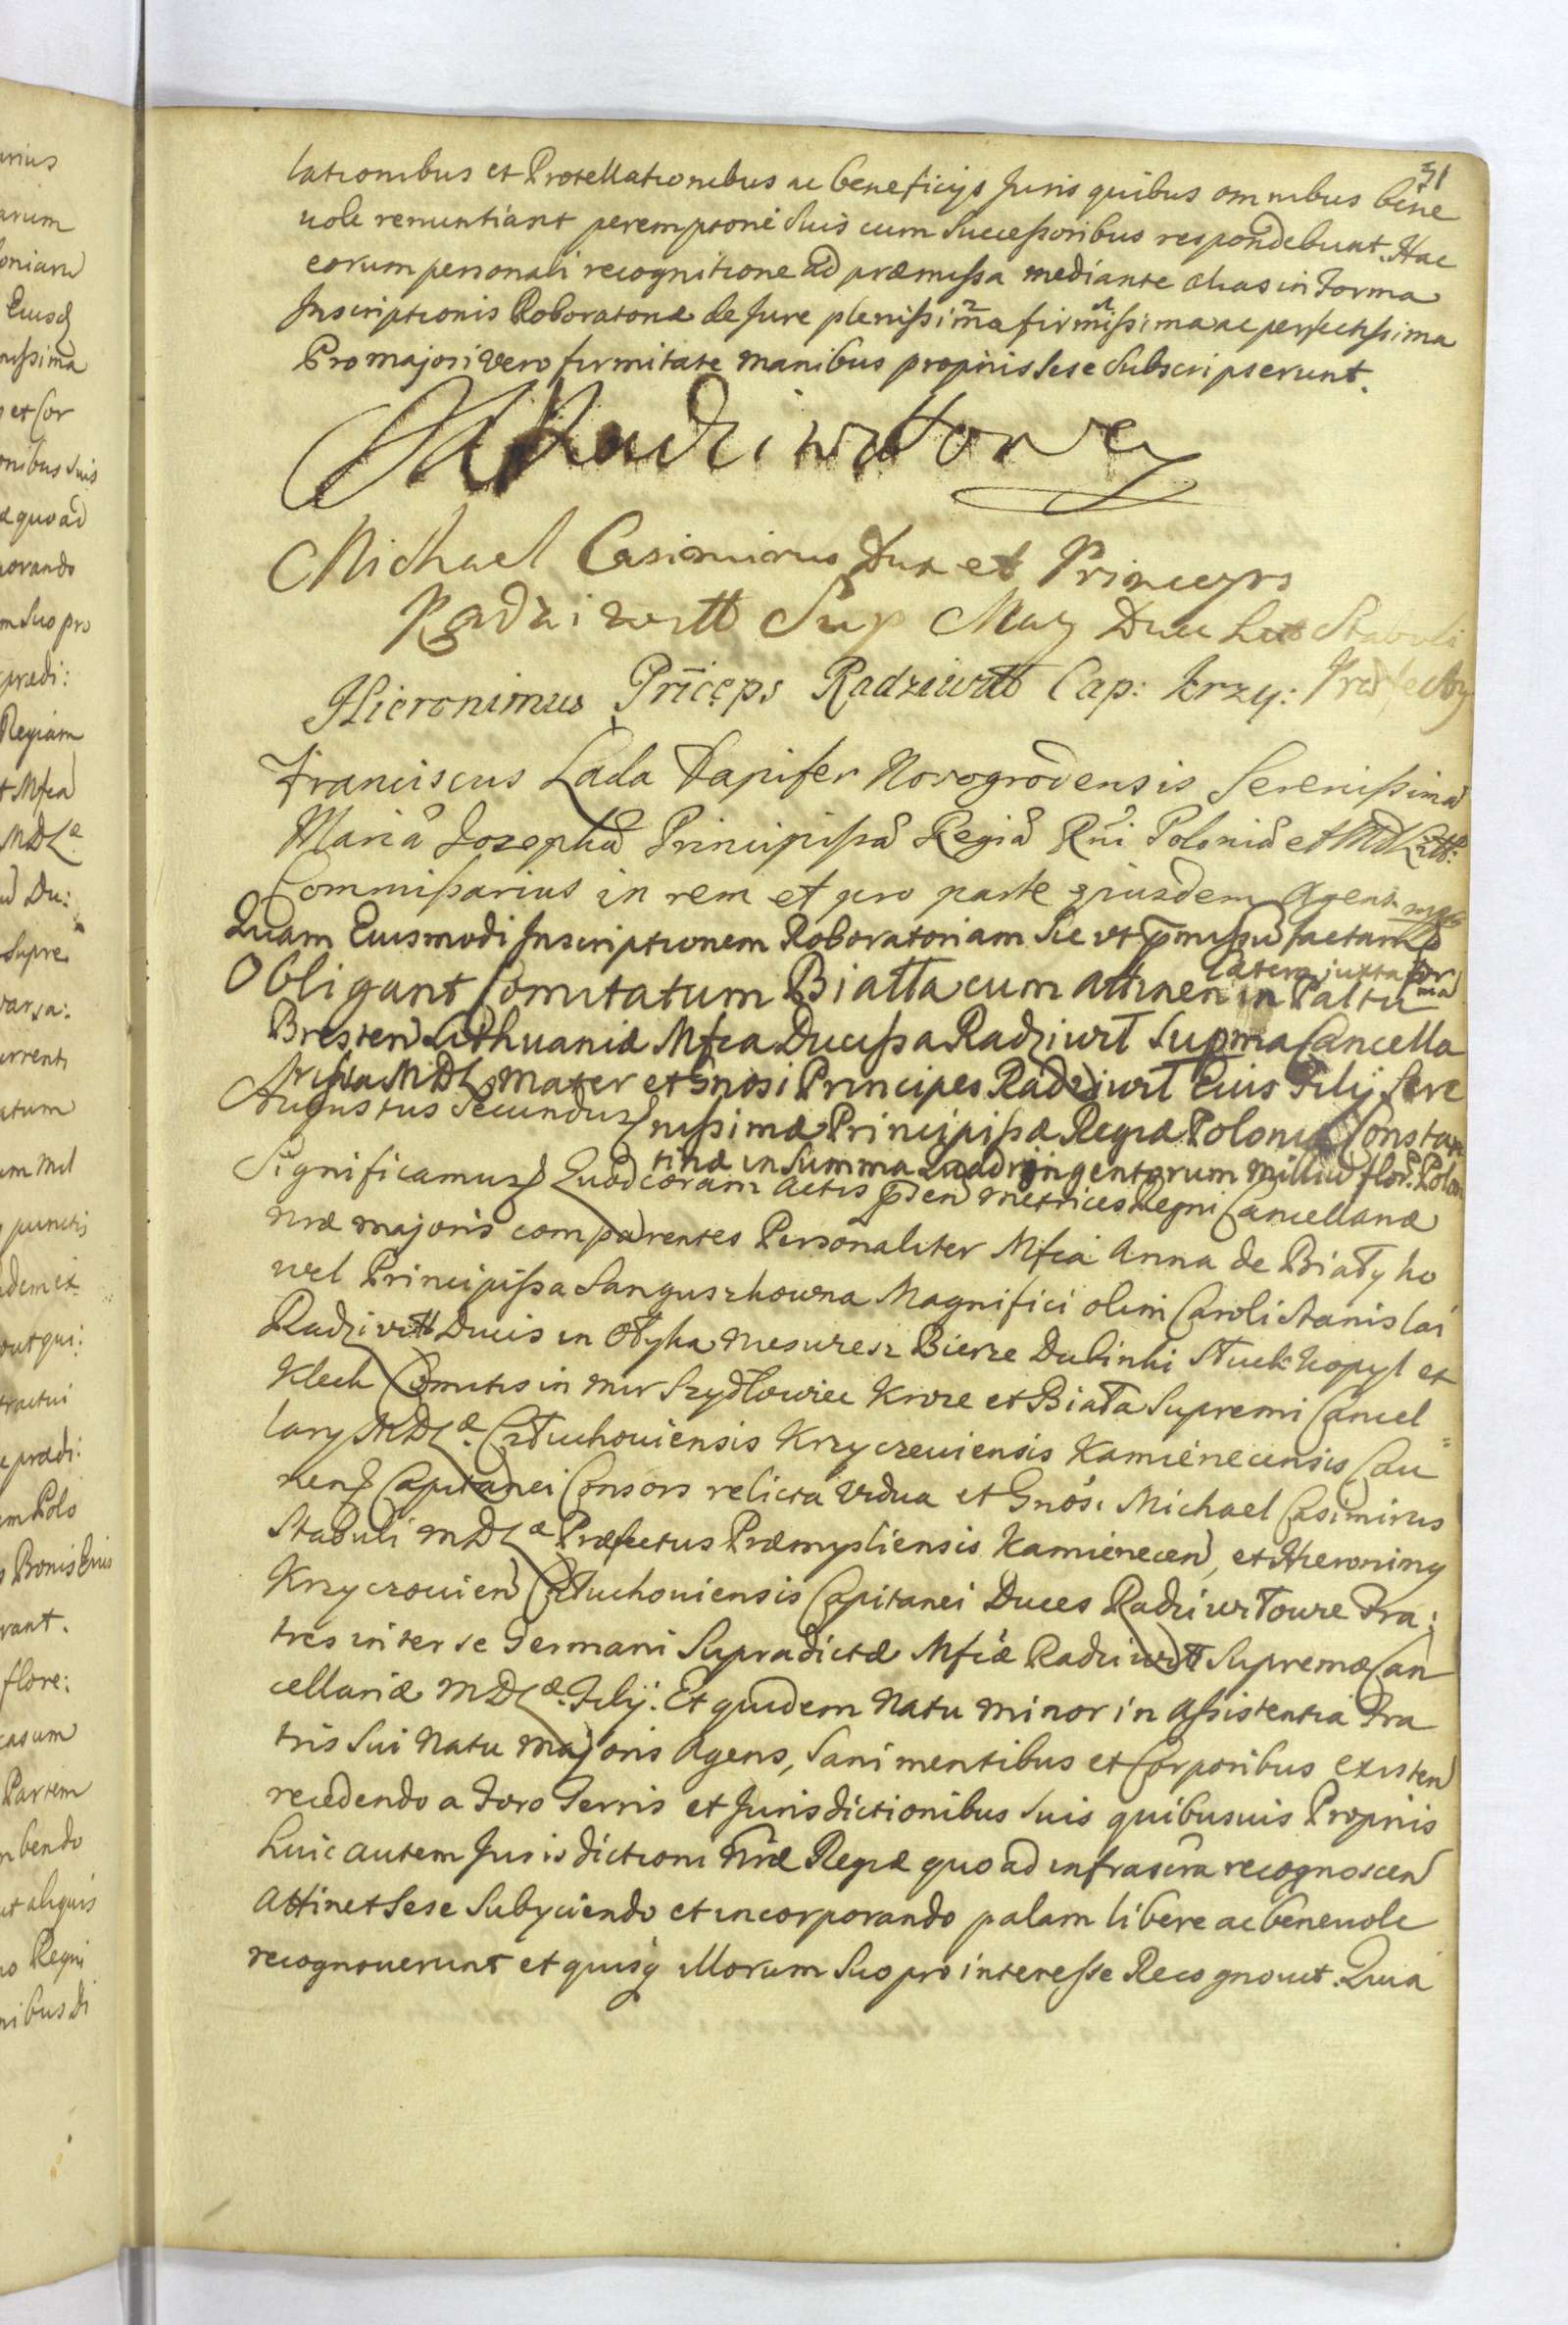 31
lationibus et Protestationibus ac beneficijs Juris quibus omnibus bene
uole renuntiant peremptorie Suis cum Successoribus respondebunt. Hac
eorum personali recognitione ad præmissa mediante alias in Forma
Inscriptionis Roboratoriæ de Jure plenissima firmissima ac perfectissima
Pro majori vero firmitate manibus proprijs sese Subscripserunt.
Radziwiłłowa
Michael Casimirus Dux et Princeps
Radziwiłł Sup Mag Duc Lit Stabuli
Hieronimus Priceps Radziwiłł Cap: krzy: Præfectus
Franciscus Lada Dapifer Novogrodensis Serenissimæ
Mariæ Josephæ Principissæ Regiæ Rni Poloniæ et MDLitt:
Commissarius in rem et pro parte ejusdem Agens mpp
Quam Eiusmodi Inscriptionem Roboratoriam Sic vt pmissu factam
Latera juxta for
ma
Obligant Comitatum Biatta cum attinen in Paltu
Bresten Lithuaniæ Mfca Ducissa Radziwił Supma Cancella
rissa MDL Mater et Gnosi Principes Radziwił Eius Filij Sere
Augustus Secundus
nissimæ Principissæ Regiæ Poloniæ Constan
tinæ in Summa Quadringentorum milliu flor: Polon
Significamus Quod coram Actis psen metrices Regni Cancellariæ
nræ majoris comparentes Personaliter Mfca Anna de Białyko
wel Principissa Sanguszkowna Magnifici olim Caroli Stanislai
Radziwiłł Ducis in Ołyka Nieswiesz Bierze Dubinki Słuck Kopyl et
Kleck Comitis in Mir Szydłowiec Kroze et Biała Supremi Cancel
larij MDLæ. Człuchouiensis Krzyczeuiensis Kamienecensis Cau
nens Capitanei Consors relicta Vidua et Gnosi Michael Casimirus
Stabuli MDLæ Præfectus Præmysliensis Kamienecen, et Hieronimy
Krzyczouien Człuchouiensis Capitanei Duces Radziwiłowie Fra:
tres inter se Germani Supradictæ Mfcæ Radziwiłł Supremæ Can
cellariæ MDLæ. Filij. Et quidem Natu minor in Assistentia Fra
tris Sui Natu majoris Agens, Sani mentibus et Corporibus existen
recedendo a Foro Terris et Jurisdictionibus Suis quibusuis Proprijs
huic autem Jurisdictioni nræ Regiæ quo ad infrascra recognoscen
Attinet Sese Subyciendo et incorporando palam libere ac beneuole
recognouerunt et quisq illorum Suo pro interesse Recognouit. Quia